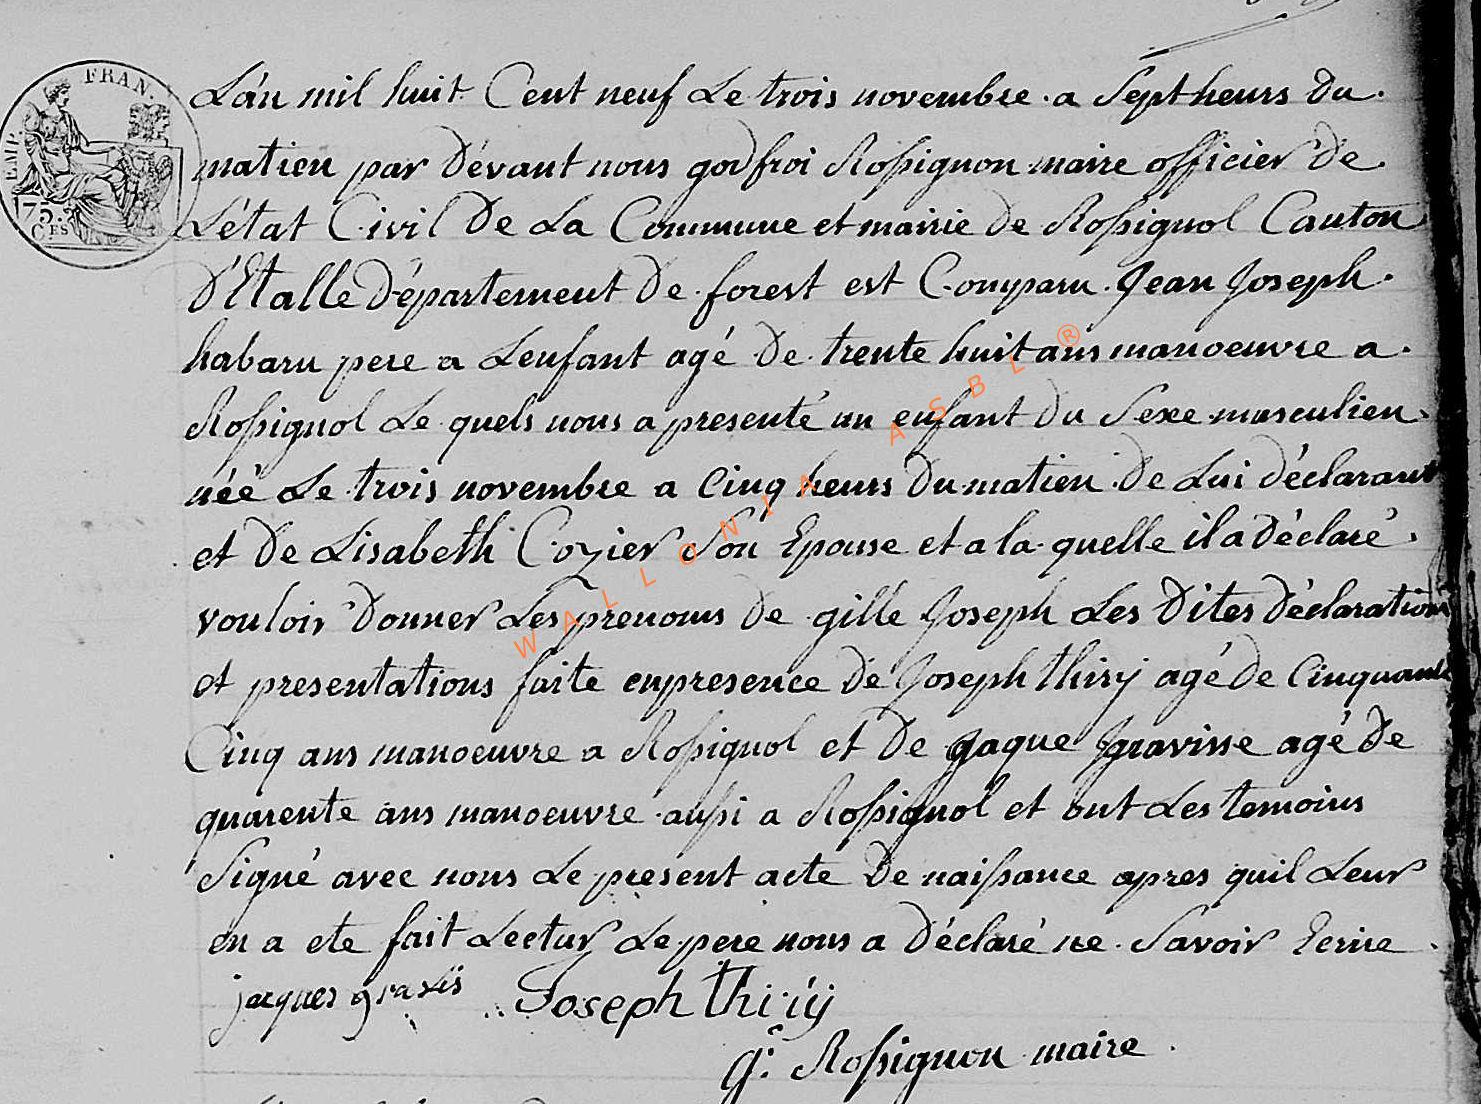 FRAN.
EMP.
75.
CES
L'an mil huit Cent neuf Le trois novembre a Sept heurs du
matien par dévant nous godfroi Rossignon maire officier de
L'état Civil de La Commune et mairie de Rossignol Canton
d'Etalle département de forest est Comparu Jean Joseph
habaru pere a Lenfant agé de trente huit ans manoeuvre a
Rossignol Le quels nous a presenté un enfant du Sexe masculien
néé Le trois novembre a Cinq heurs du matien de Lui déclarant
et de Lisabeth Cozier Son Epouse et a la quelle il a déclaré
vouloir donner Les prenoms de gille Joseph Les dites déclarations
et presentations faite enpresence de Joseph thiry agé de Cinquante
Cinq ans manoeuvre a Rossignol et de Jaque gravisse agé de
quarente ans manoeuvre aussi a Rossignol et ont Les temoins
Signé avec nous Le present acte de naissance apres quil Leur
en a ete fait Lectur Le pere nous a déclaré ne Savoir Ecrire
jacques gravis Joseph thirÿ
g: Rossignon maire
WALLONIA ASBL ®